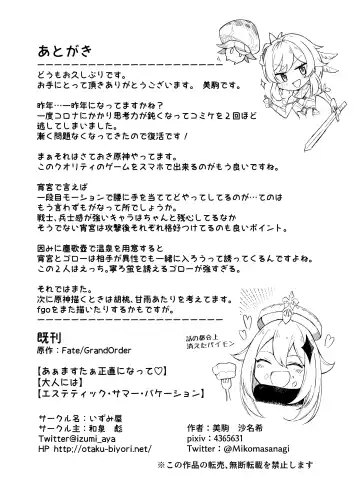 あとがき
どうもお久しぶりです。
お手にとって頂きありがとうございます。 美駒です。
昨年…一昨年になってますかね？
一度コロナにかかり思考力が鈍くなってコミケを２回ほど
逃してしまいました。
漸く問題なくなってきたので復活です！
まぁそれはさておき原神やってます。
このクオリティのゲームをスマホで出来るのがもう良いですね。
宵宮で言えば
一段目モーションで腰に手を当ててどやってしてるのが…てのは
もう言わずもがなって所でしょうか。
戦士、兵士感が強いキャラはちゃんと残心してるなか
そうでない宵宮は攻撃後それぞれ格好つけてるのも良いポイント。
因みに塵歌壺で温泉を用意すると
宵宮とゴローは相手が異性でも一緒に入ろうって誘ってくるんですよね。
この２人はえっち。寧ろ蛍を誘えるゴローが強すぎる。
それではまた。
次に原神描くときは胡桃、甘雨あたりを考えてます。
fgoをまた描いたりするかもですが。
既刊
原作：Fate/GrandOrder
【あぁますたぁ正直になって♡】
【大人には】
【エステティック・サマー・バケーション】
話の都合上
消えたパイモン
サークル名：いずみ屋
サークル主：和泉　彪
Twitter@izumi_aya
HP http://otaku-biyori.net/
作者：美駒　沙名希
pixiv：4365631
Twitter：@Mikomasanagi
※この作品の転売、無断転載を禁止します